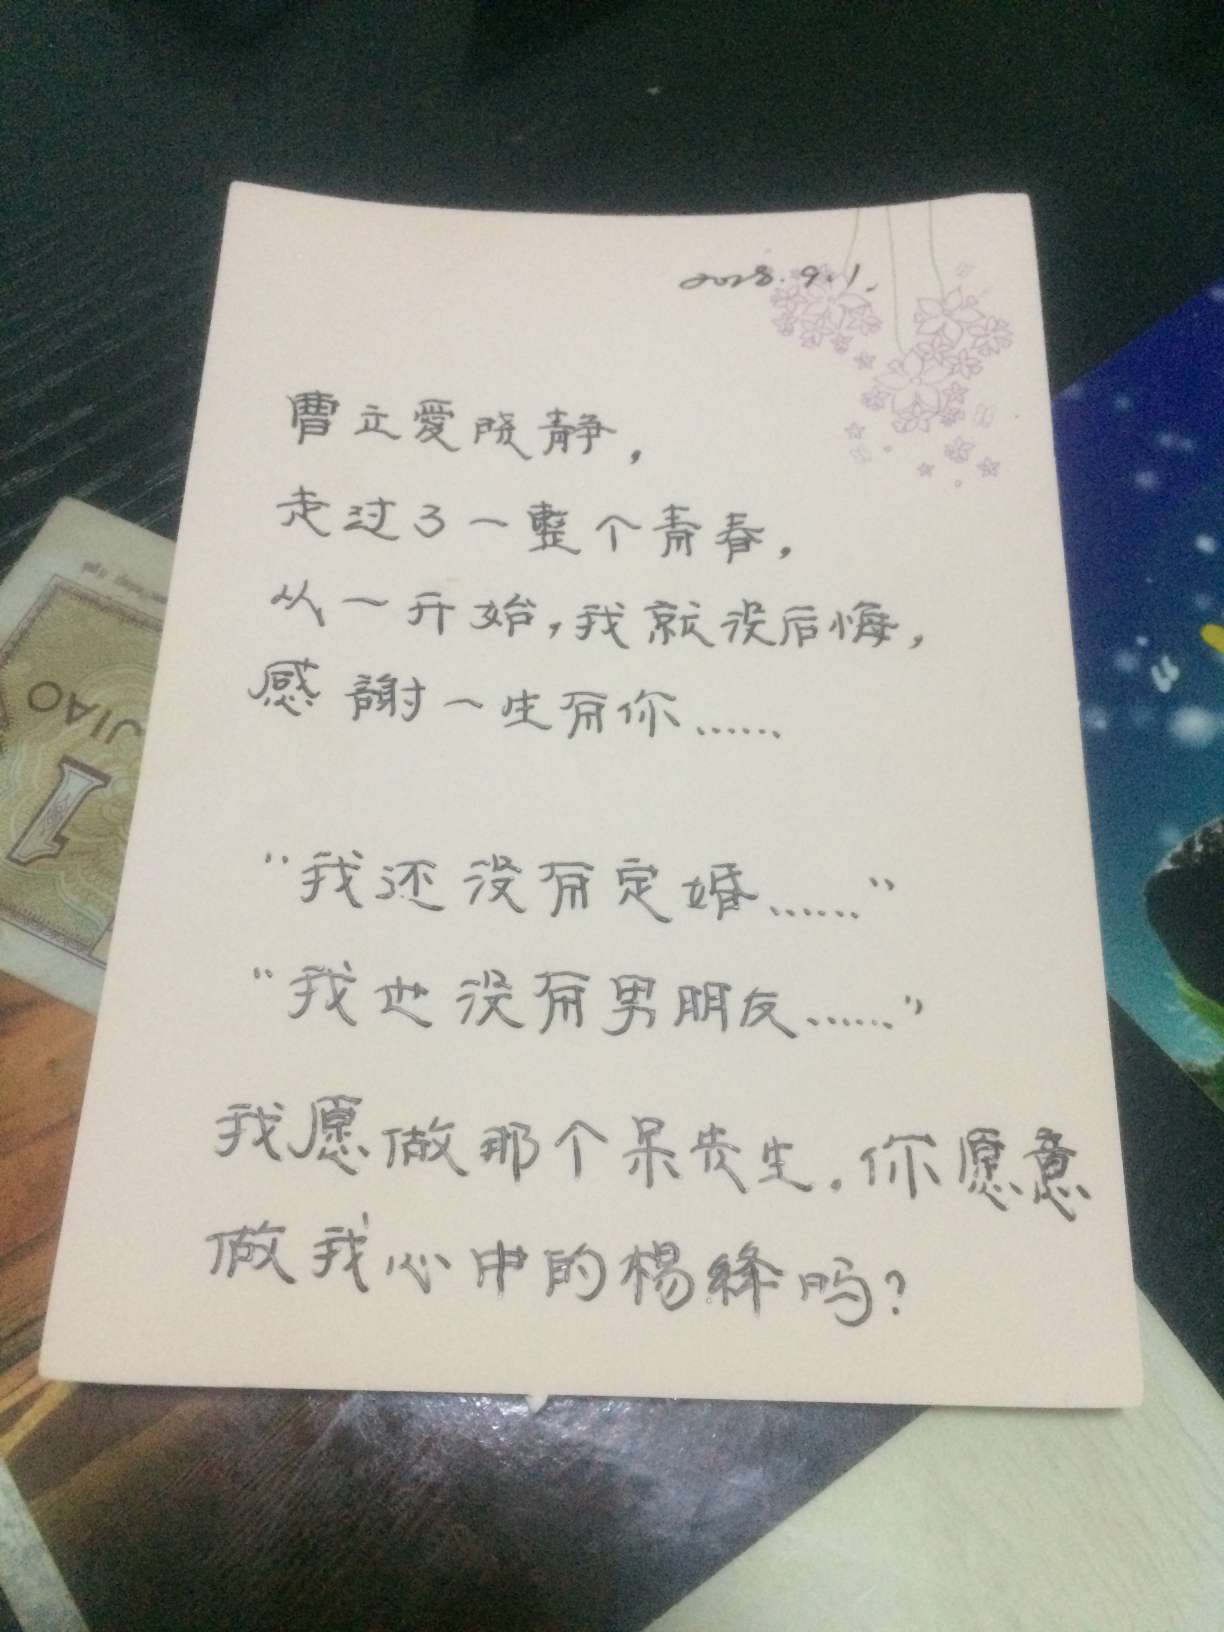 2028.9.1.
曹立愛晓静，
走过了一整个青春，
从一开始，我就没后悔，
感謝一生有你……
“我还没有定婚……”
“我也没有男朋友……”
我愿做那个呆先生。你愿意
做我心中的楊絳吗？
JIAO
1